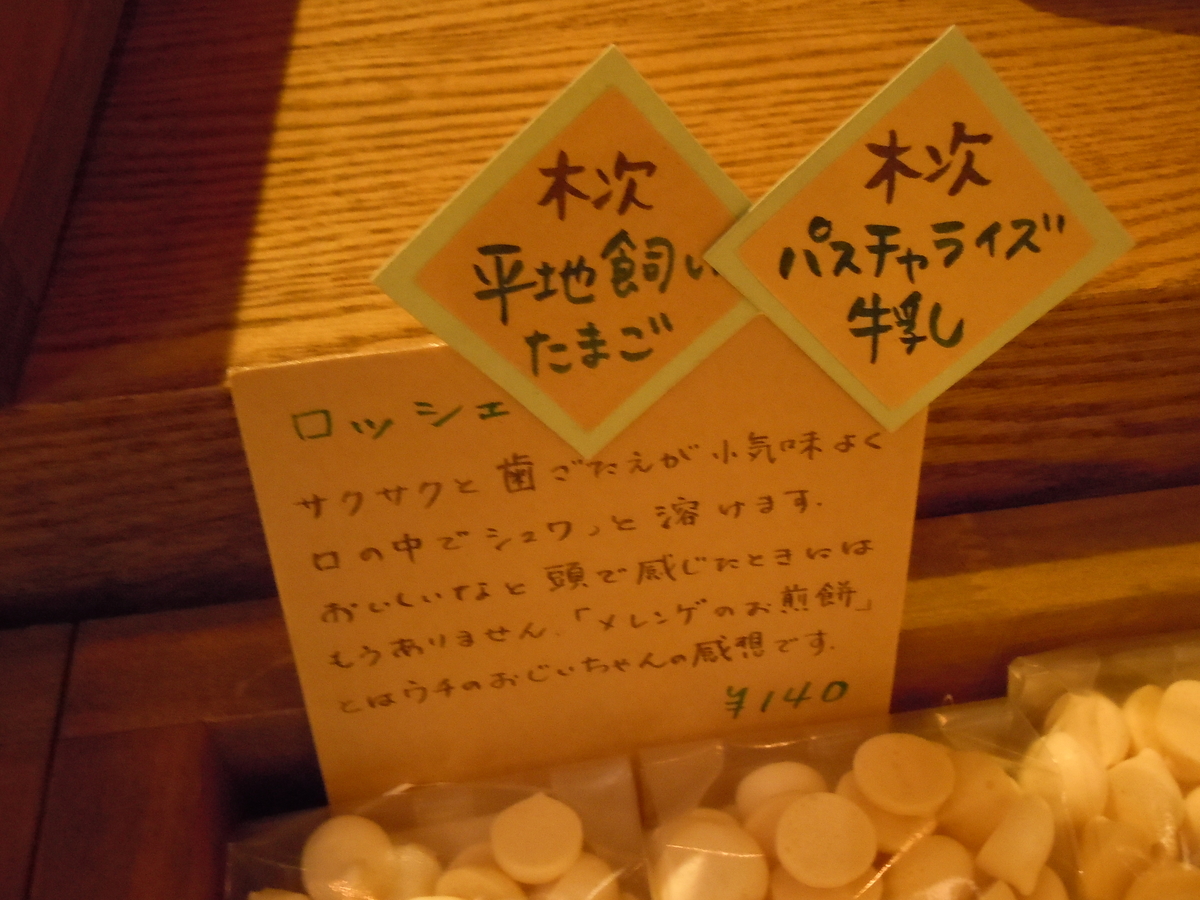 木次
平地飼い
たまご
木次
パスチャライズ
牛乳
ロッシェ
サクサクと歯ごたえが小気味よく
口の中でシュワっと溶けます.
おいしいなと頭で感じたときには
もうありません.「メレンゲのお煎餅」
とはウチのおじいちゃんの感想です.
¥140